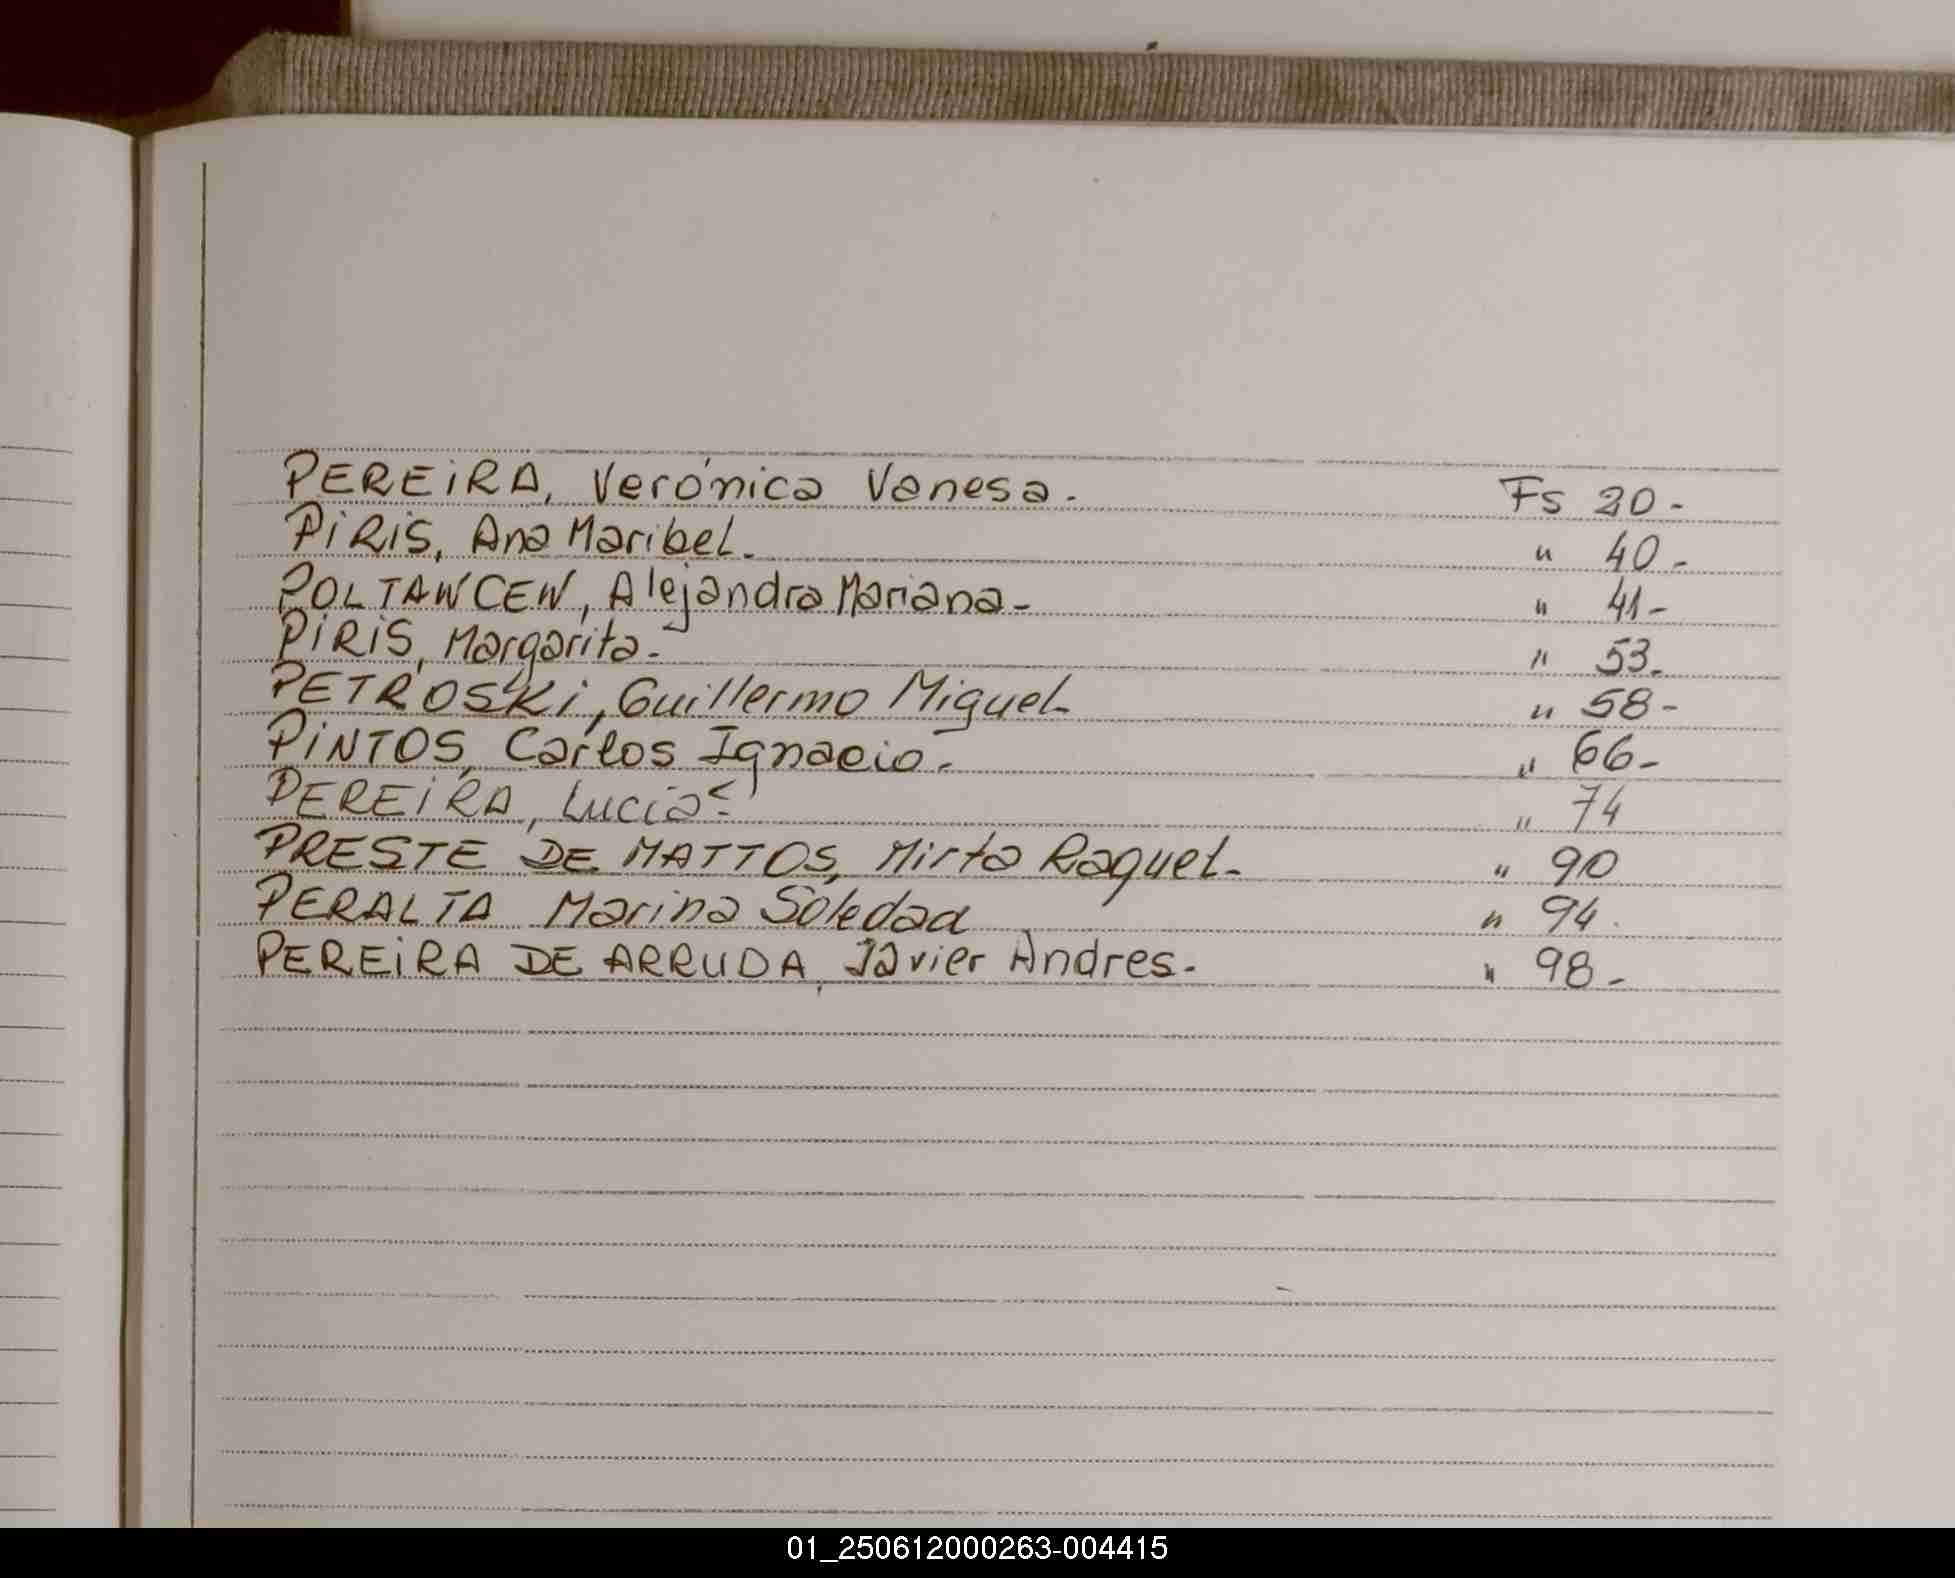 PEREiRA, Verónica Vanesa. Fs 30-
PiRiS, Ana Maribel. " 40-
POLTAWCEW, Alejandra Mariana- " 41-
PiRiS, Margarita- " 53.
PETROSKi, Guillermo Miguel- " 58-
PiNTOS, Carlos Ignacio- " 66-
PEREiRA, Lucia- " 74
PRESTE DE MATTOS, Mirta Raquel- " 90
PERALTA Marina Soledad " 94.
PEREiRA DE ARRUDA, Javier Andres- " 98-
01_250612000263-004415